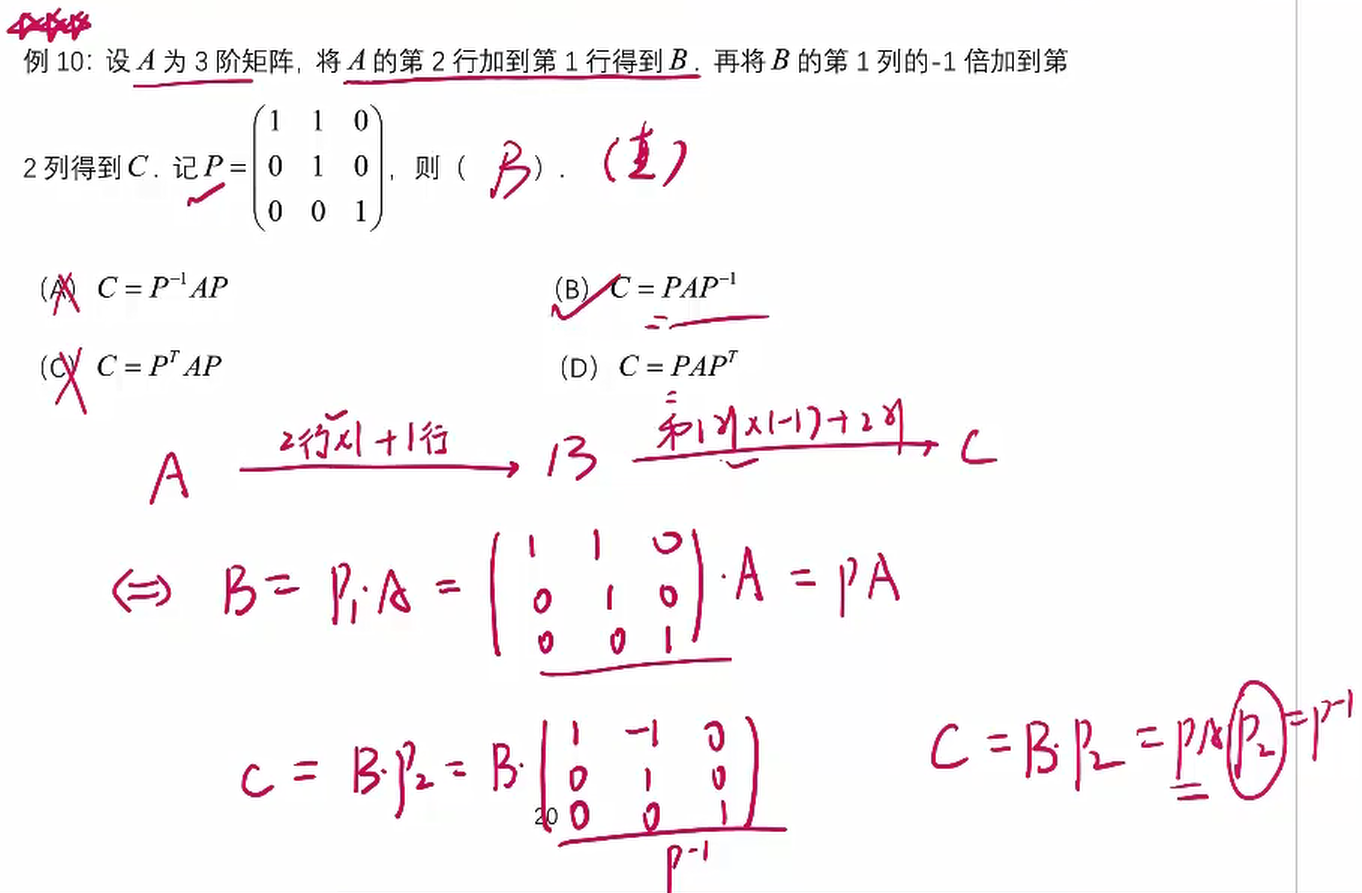 例 10：设 A 为 3 阶矩阵, 将 A 的第 2 行加到第 1 行得到 B . 再将 B 的第 1 列的-1 倍加到第
2 列得到 C . 记 P = (1 1 0; 0 1 0; 0 0 1) , 则 ( B ) .
(A) C = P⁻¹AP (B) C = PAP⁻¹
(C) C = PᵀAP (D) C = PAPᵀ
A 2行×1+1行 → B 1列×(-1)+2列 → C
⇔ B = P₁·A = (1 1 0; 0 1 0; 0 0 1)·A = PA
C = B·P₂ = B·(1 -1 0; 0 1 0; 0 0 1)
P⁻¹
C = B·P₂ = PAP₂ = P⁻¹
20